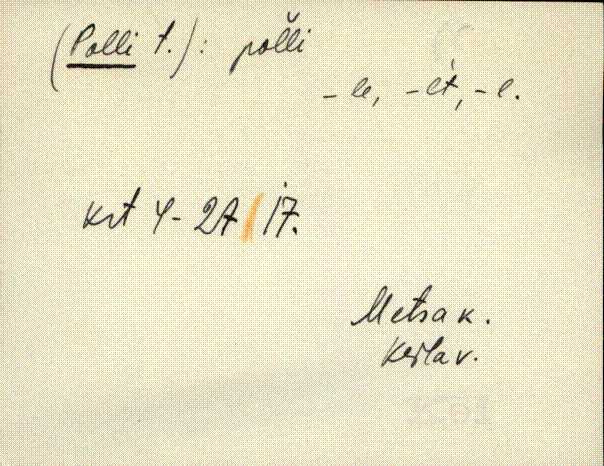 (Polli t.): pol̆li
– le, – et, – e.
krt 4-27/17.
Metsa k.
Keila v.